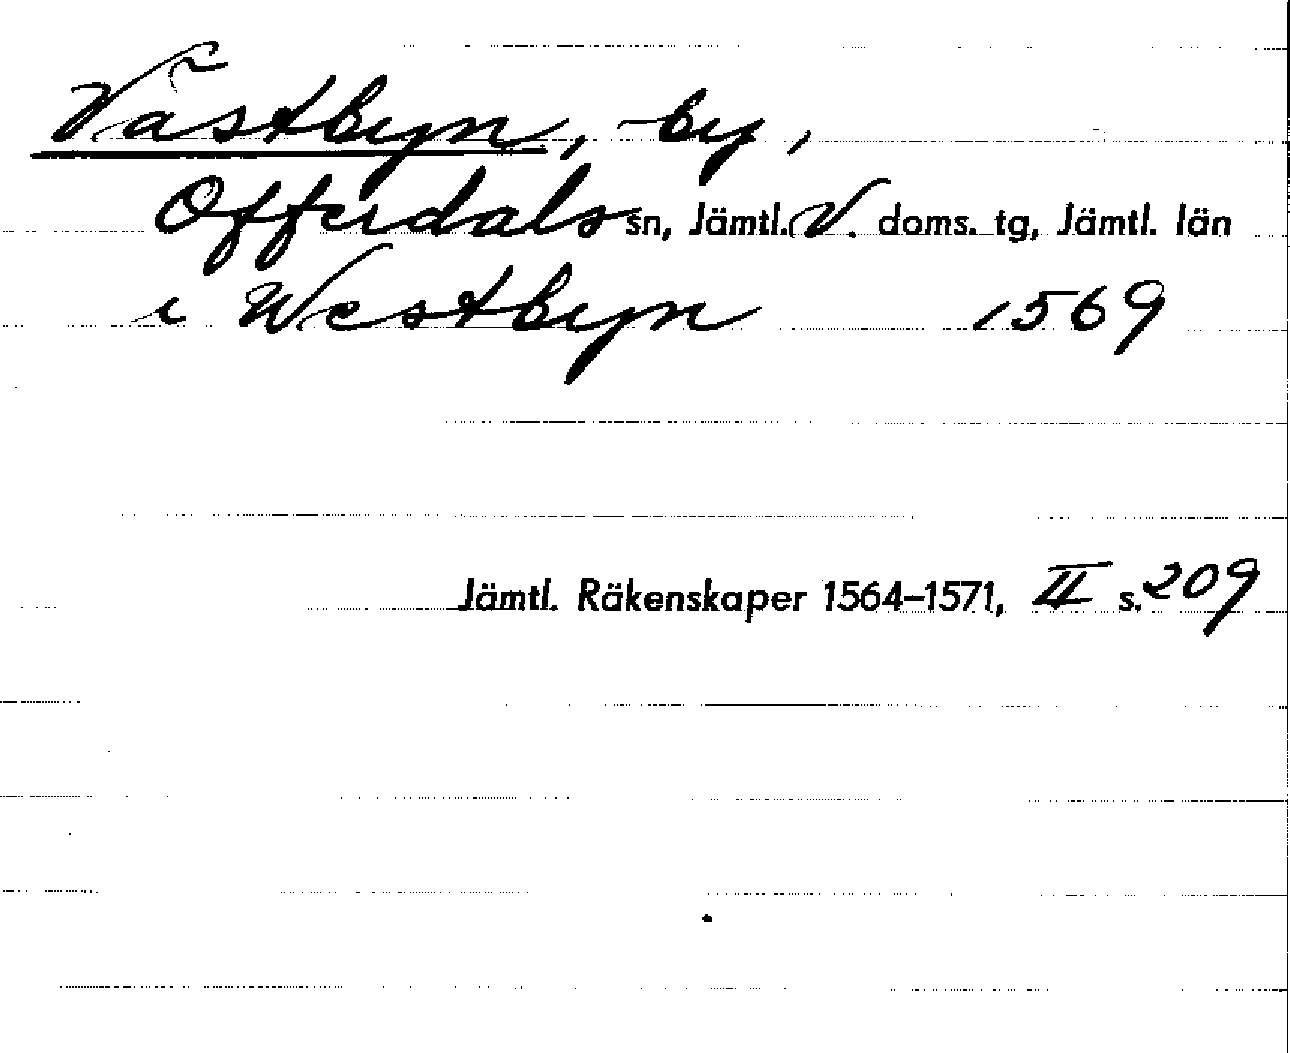 Västbyn, by,
Offerdals sn, Jämtl. V. doms. tg, Jämtl. län
i Westbyn 1569
Jämtl. Räkenskaper 1564–1571, II s. 209